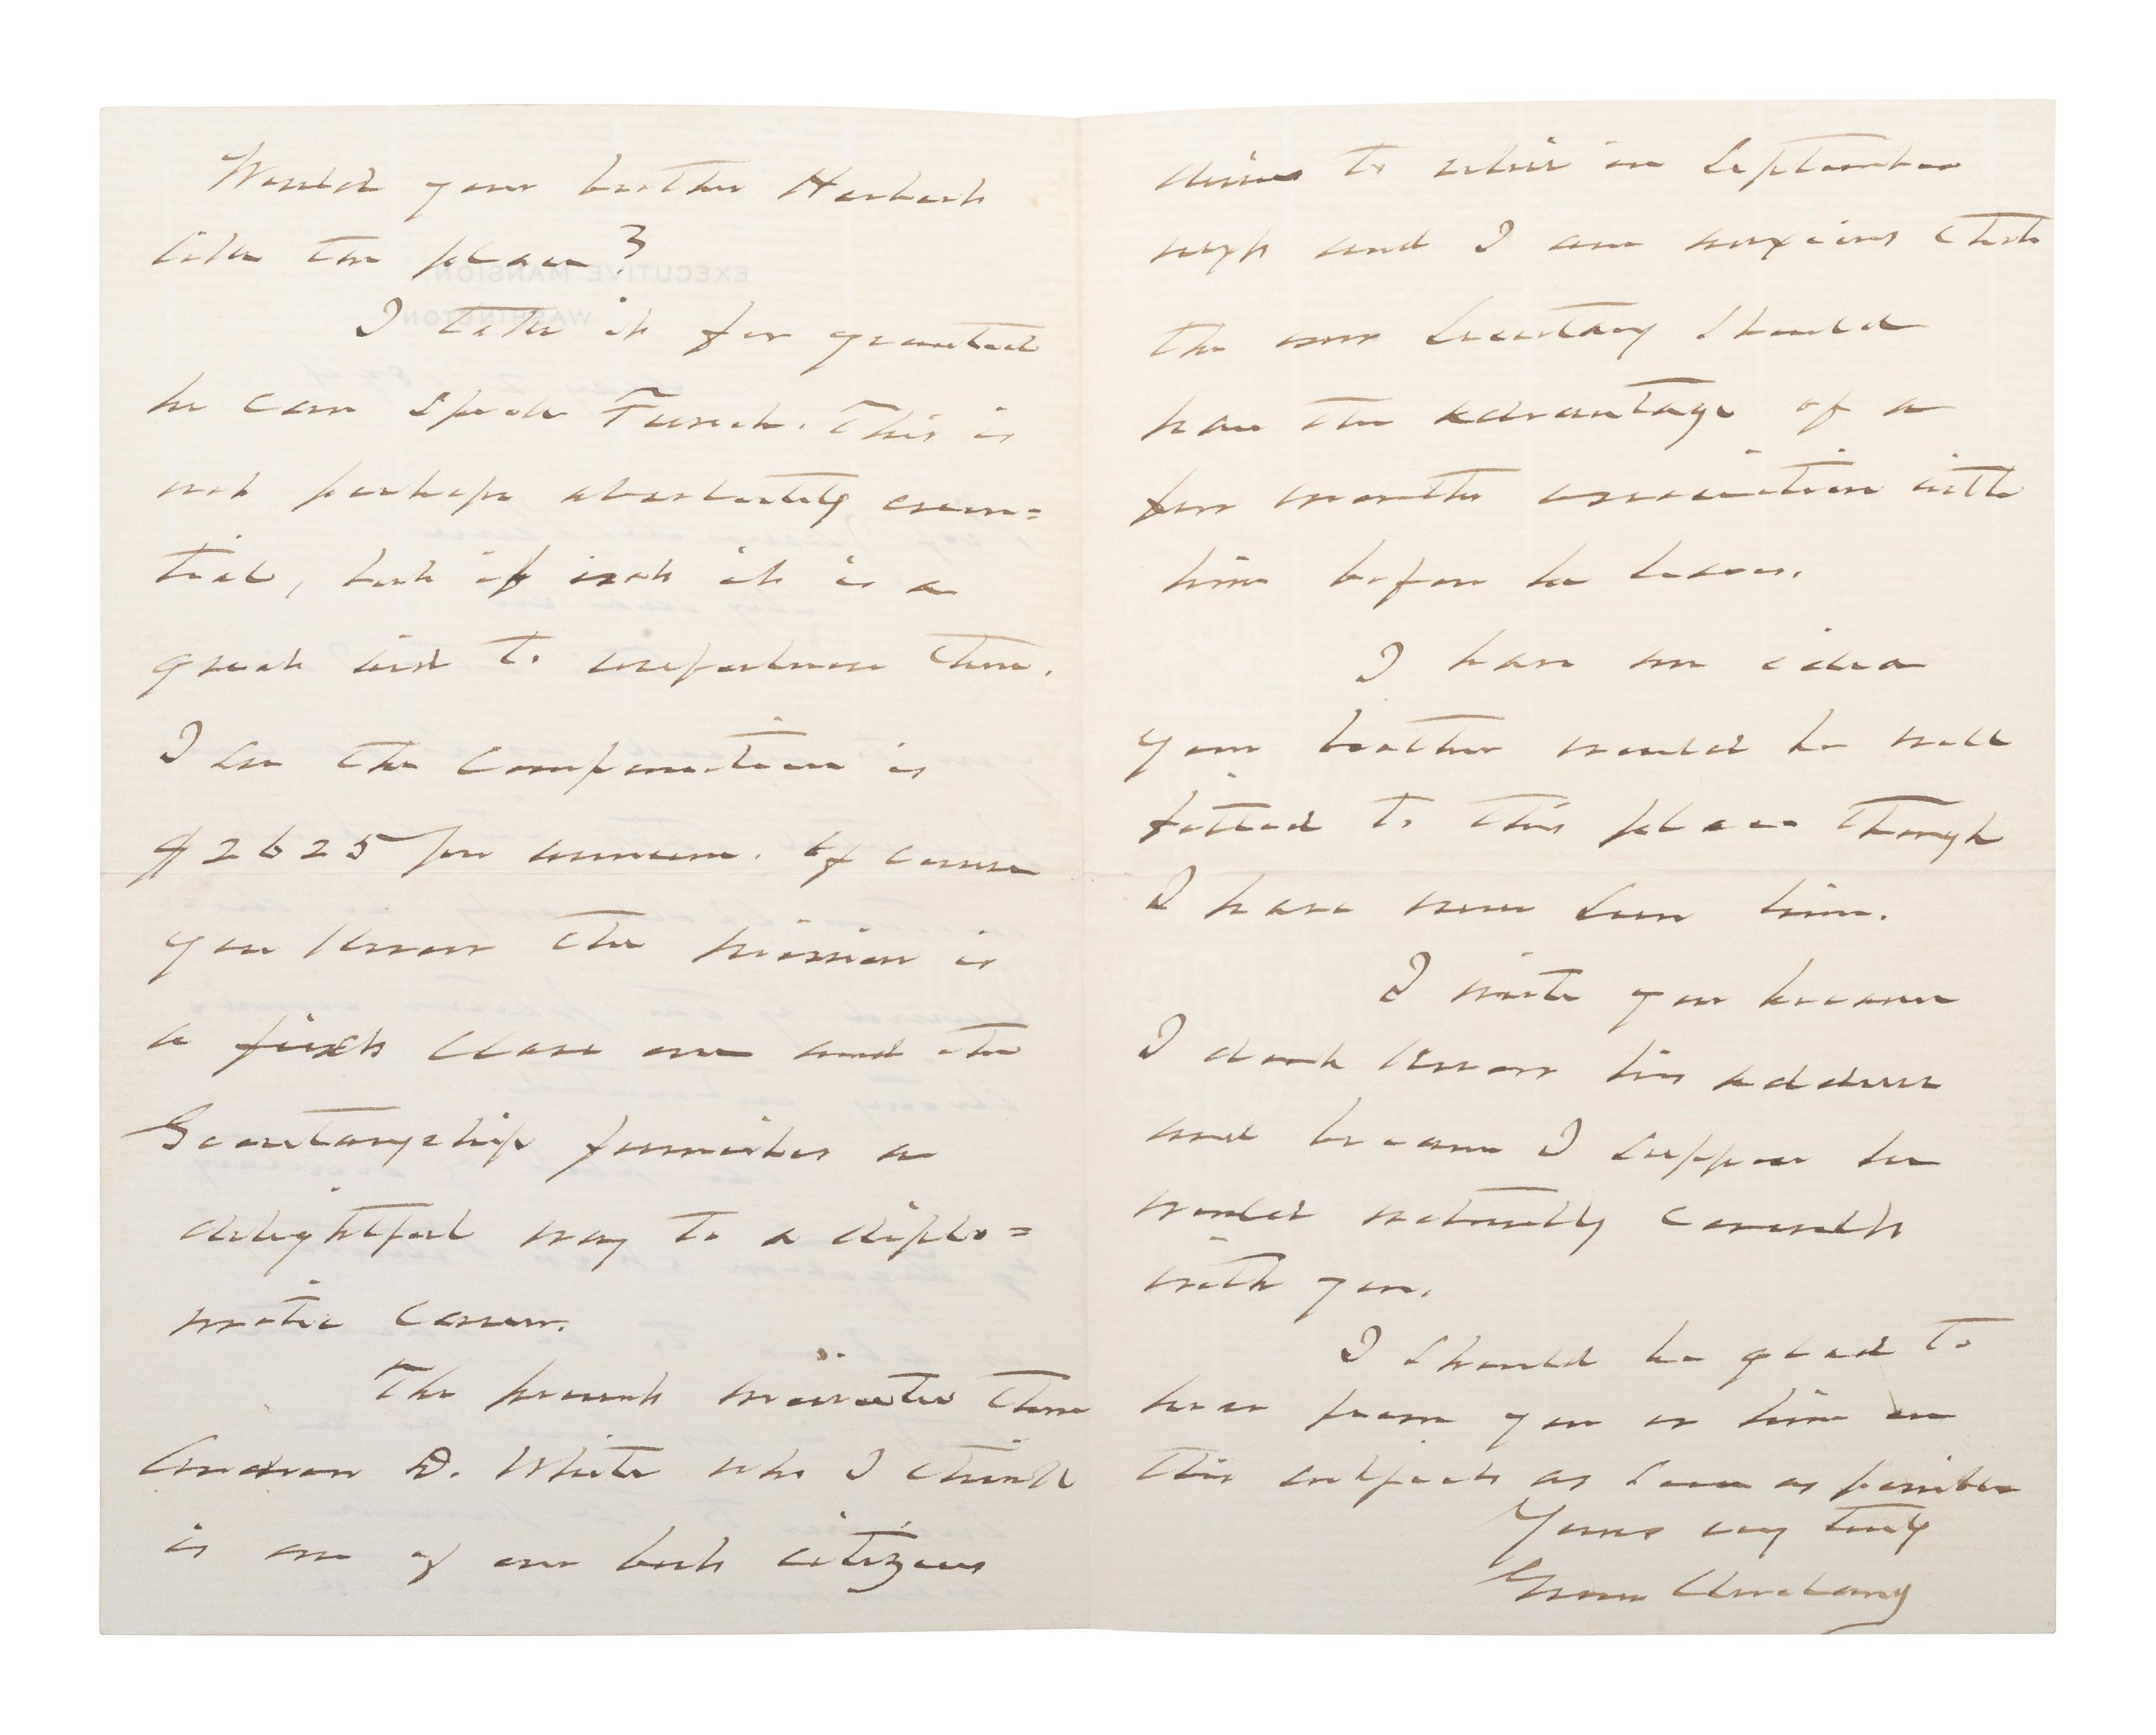 Would your brother Herbert
like the place?
I take it for granted
he can speak French. This is
not perhaps absolutely essen=
tial, but if not it is a
great aid to usefulness there.
I see the compensation is
$2625 per annum. Of course
you know the mission is
a first class one and the
Secretaryship furnishes a
delightful way to a diplo=
matic career.
The present minister there
Andrew D. White who I think
is one of our best citizens
desires to retire in September
next and I am anxious that
the new Secretary should
have the advantage of a
few months association with
him before he leaves.
I have an idea
your brother would be well
fitted to this place though
I have never seen him.
I write you because
I dont know his address
and because I suppose he
would naturally consult
with you.
I should be glad to
hear from you or him on
this subject as soon as possible
Yours very truly
Grover Cleveland
EXECUTIVE MANSION,
WASHINGTON.